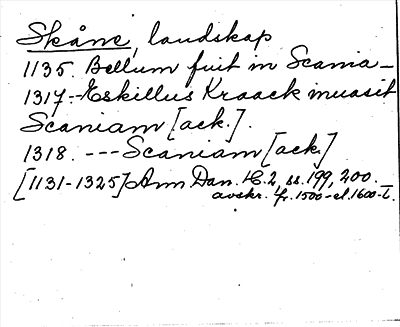 Skåne, landskap
1135. Bellum fuit in Scania –
1317.-Eskillus Kraack inuasit
Scaniam [ack.].
1318. ---Scaniam [ack.]
[1131-1325] Ann Dan. 16.2, ss. 199, 200.
avskr. fr. 1500- el. 1600-t.